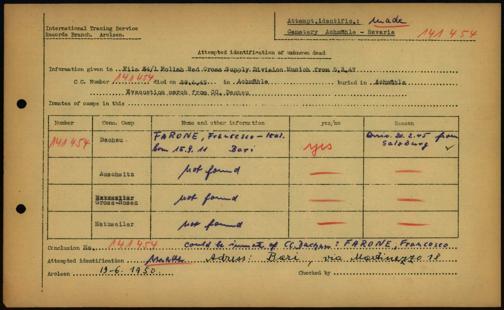 International Tracing Service
Records Branch. Arolsen.
Attempt.identific.: made
Cemetery Achmühle - Bavaria
141 454
Attempted identification of unknown dead
Information given in File E4/1 Polish Red Cross Supply Division Munich from
C.C. Number 141454 died on in Achmühle buried in Achmühle
Evacuation march from CC. Dachau
Inmates of camps in this
Number Conc. Camp Name and other information yes/no Reason
141 454 Dachau FARONE, Francesco - ital. yes 20.2.45 from
born 15.9.11 Bari Salzburg
Auschwitz not found
Gross-Rosen not found
Natzweiler not found
Conclusion No. 141 454 could be inmate of CC Dachau: FARONE, Francesco
Attempted identification Adress: Bari, via 18
Arolsen 19-6. 1950 Checked by